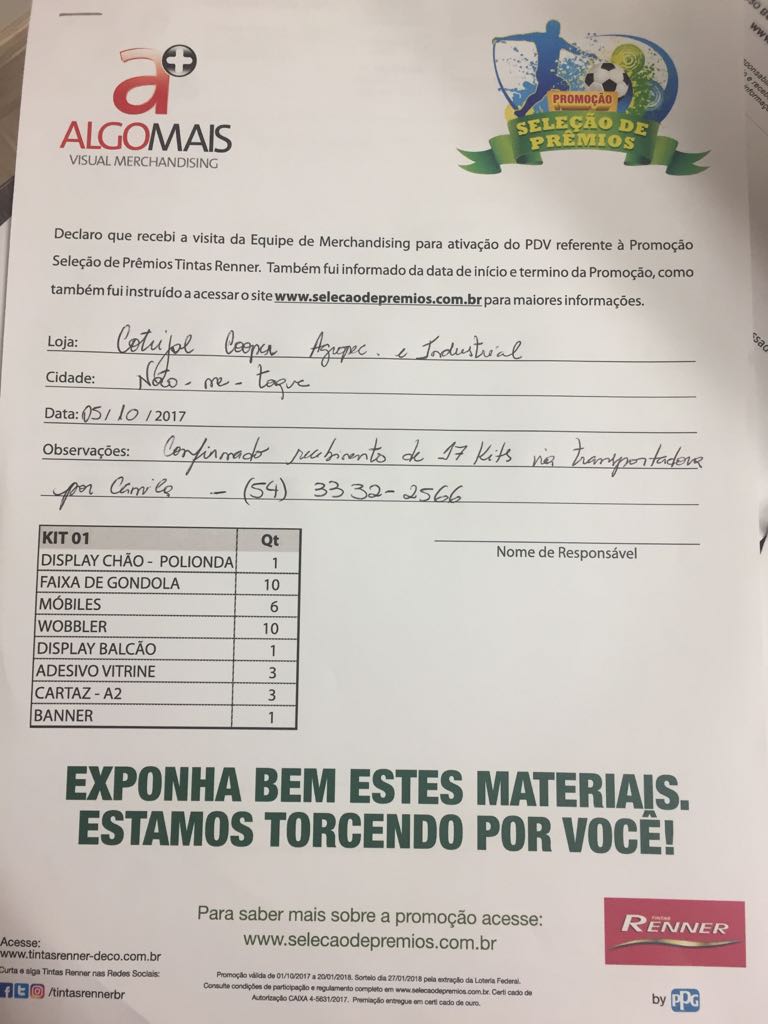 a+
ALGOMAIS
VISUAL MERCHANDISING
PROMOÇÃO
SELEÇÃO DE
PRÊMIOS
Declaro que recebi a visita da Equipe de Merchandising para ativação do PDV referente à Promoção
Seleção de Prêmios Tintas Renner. Também fui informado da data de início e termino da Promoção, como
também fui instruído a acessar o site www.selecaodepremios.com.br para maiores informações.
Loja: Cotrijal Cooper Agropec. e Industrial
Cidade: Não-me-toque
Data: 05/10/2017
Observações: Confirmado recebimento de 17 Kits na transportadora
por Camila - (54) 3332-2566
Nome de Responsável
KIT 01 Qt
DISPLAY CHÃO - POLIONDA 1
FAIXA DE GONDOLA 10
MÓBILES 6
WOBBLER 10
DISPLAY BALCÃO 1
ADESIVO VITRINE 3
CARTAZ - A2 3
BANNER 1
EXPONHA BEM ESTES MATERIAIS.
ESTAMOS TORCENDO POR VOCÊ!
Para saber mais sobre a promoção acesse:
www.selecaodepremios.com.br
TINTAS
RENNER
by PPG
Acesse:
www.tintasrenner-deco.com.br
Curta e siga Tintas Renner nas Redes Sociais:
/tintasrennerbr
Promoção válida de 01/10/2017 a 20/01/2018. Sorteio dia 27/01/2018 pela extração da Loteria Federal.
Consulte condições de participação e regulamento completo em www.selecaodepremios.com.br. Certi cado de
Autorização CAIXA 4-5631/2017. Premiação entregue em certi cado de ouro.